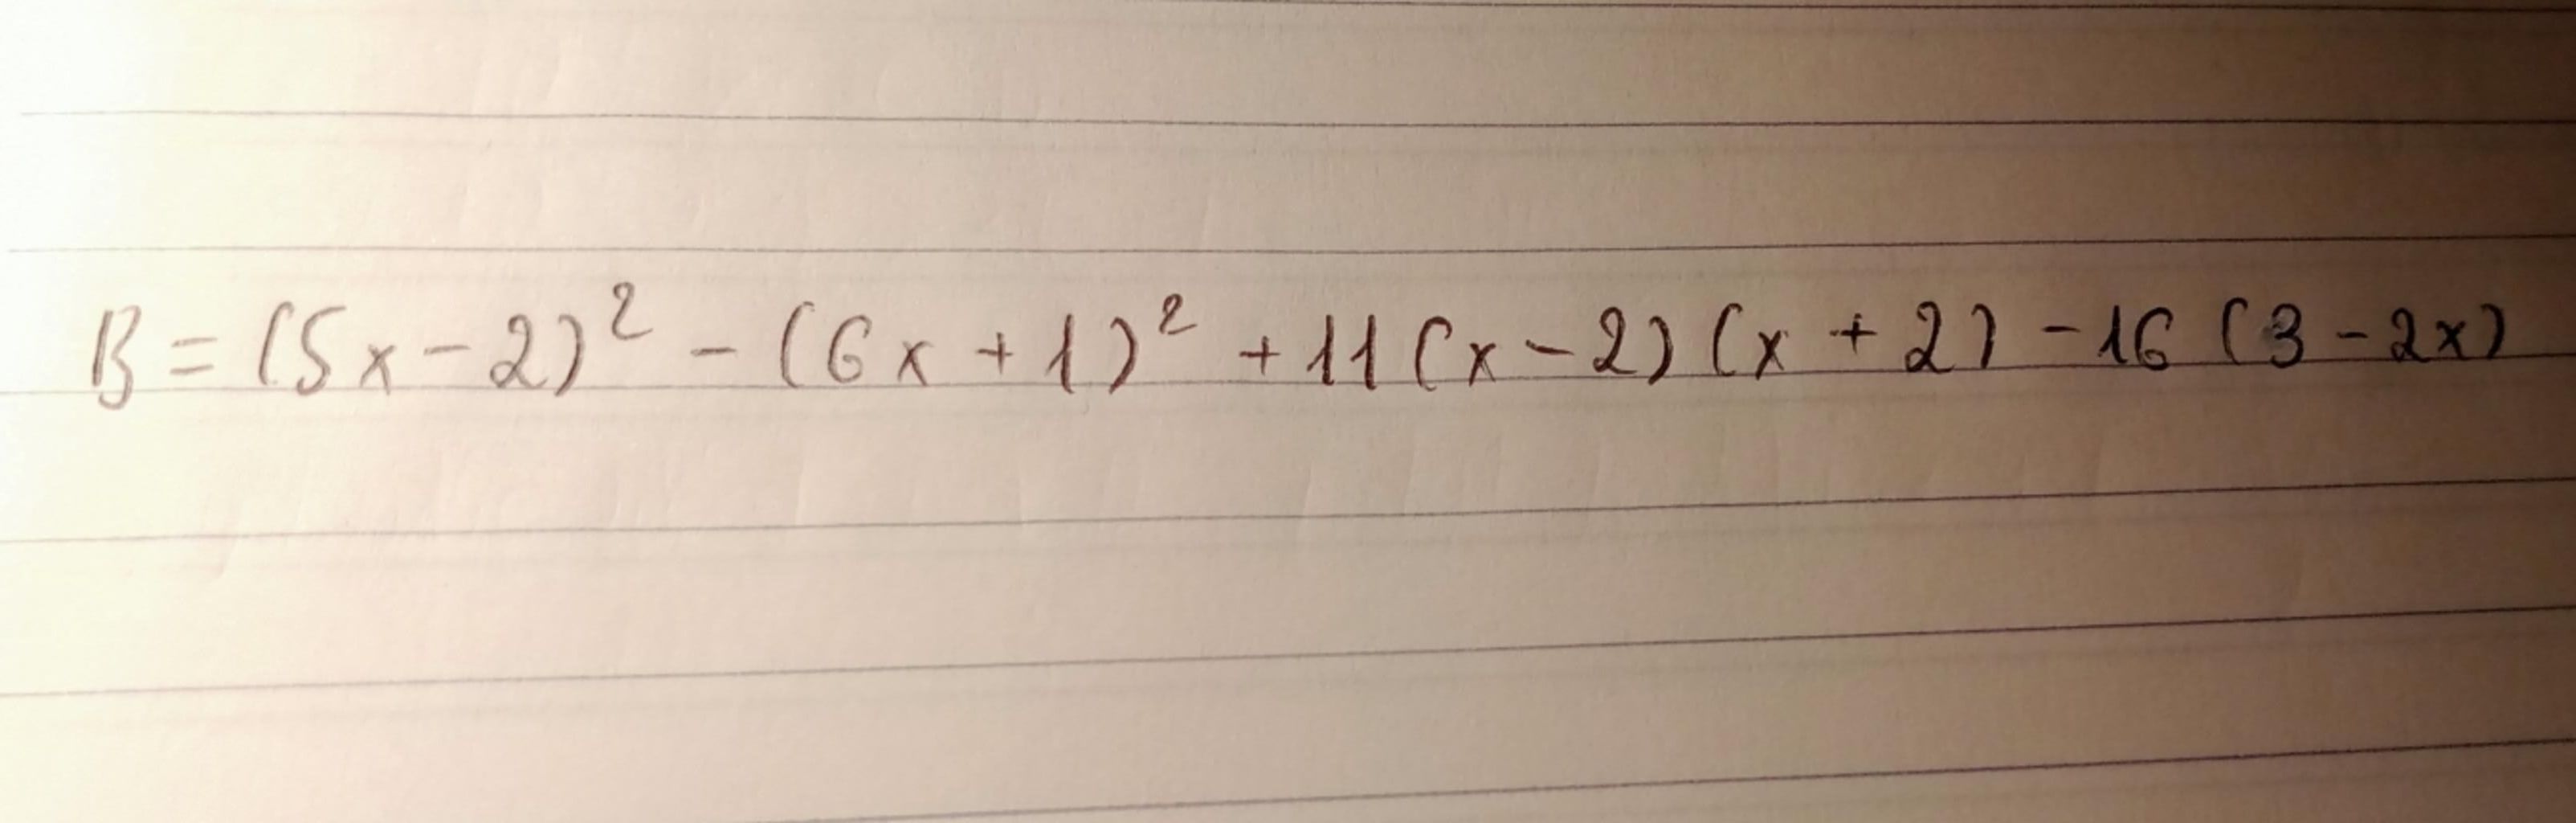 B = (5x - 2)² - (6x + 1)² + 11(x - 2)(x + 2) - 16(3 - 2x)